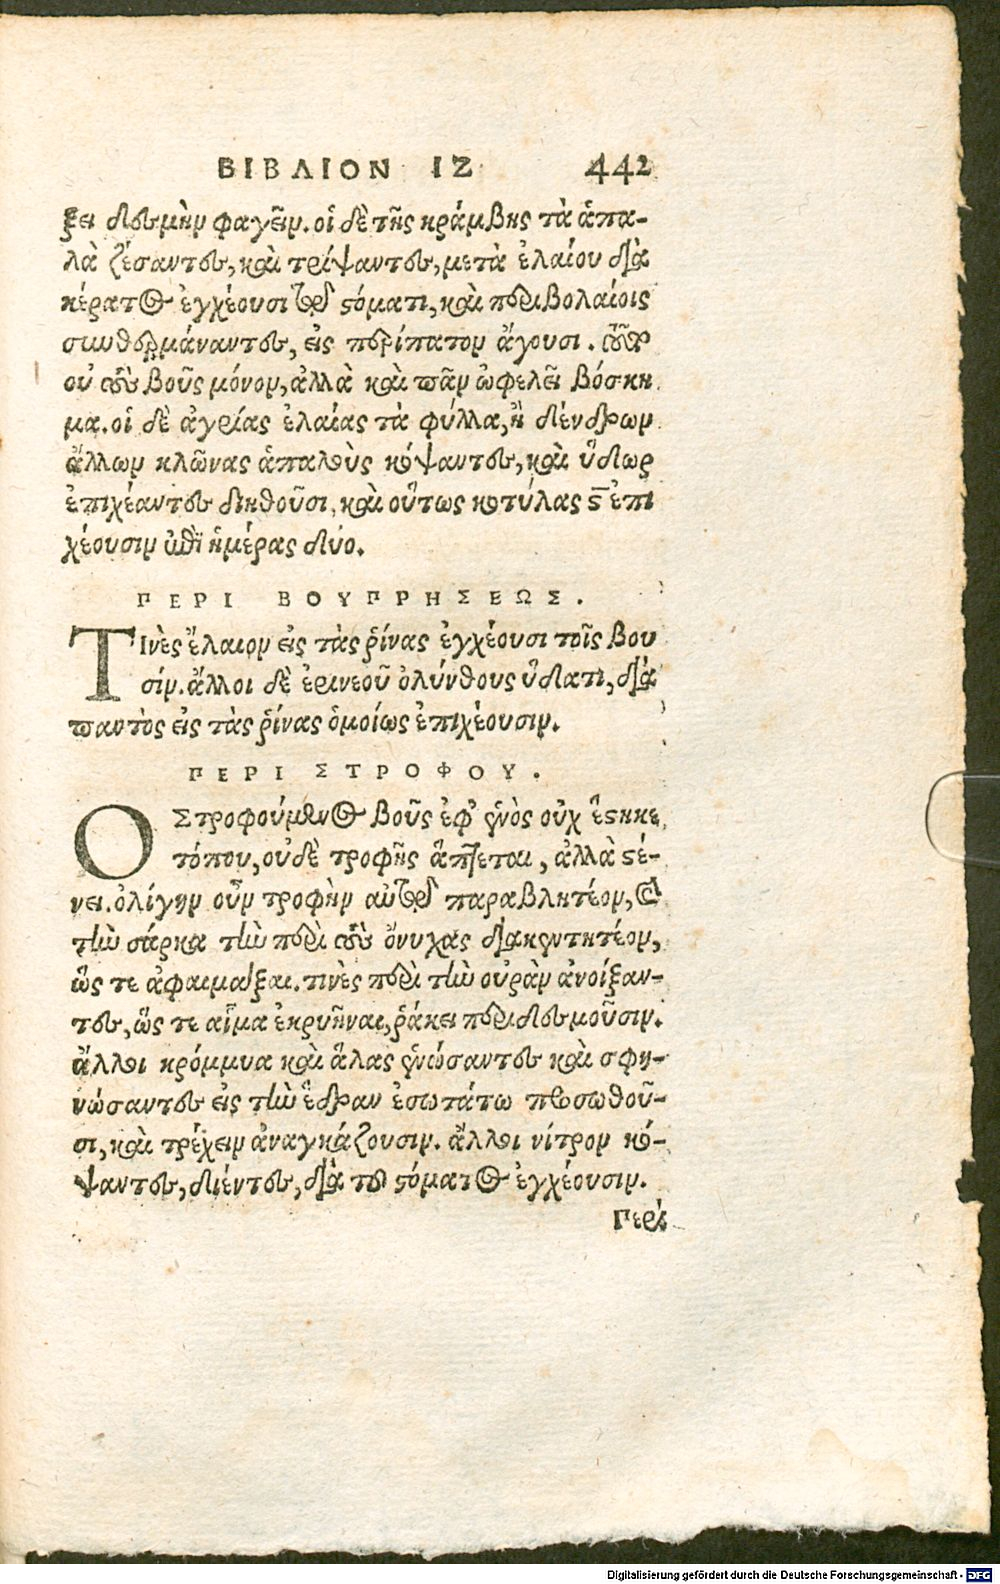 ΒΙΒΛΙΟΝ ΙΖ 442
ξει δυσμὴν φαγεῖν. οἱ δὲ τῆς κράμβης τὰ ἁπα-
λὰ ζέσαντες, καὶ τρίψαντες, μετὰ ἐλαίου διὰ
κέρατος ἐγχέουσι τῷ στόματι, καὶ περιβολαίοις
συνθερμάναντες, εἰς περίπατον ἄγουσι. τοῦτο
οὐ τοὺς βοῦς μόνον, ἀλλὰ καὶ πᾶν ὠφελεῖ βόσκη
μα. οἱ δὲ ἀγρίας ἐλαίας τὰ φύλλα, ἢ δένδρων
ἄλλων κλῶνας ἁπαλοὺς κόψαντες, καὶ ὕδωρ
ἐπιχέαντες διηθοῦσι, καὶ οὕτως κοτύλας ϛ ἐπι
χέουσιν ἐπὶ ἡμέρας δύο.
ΠΕΡΙ ΒΟΥΠΡΗΣΕΩΣ.
ΤΙνὲς ἔλαιον εἰς τὰς ῥίνας ἐγχέουσι τοῖς βου
σίν. ἄλλοι δὲ ἐρινεοῦ ὀλύνθους ὕδατι, διὰ
παντὸς εἰς τὰς ῥίνας ὁμοίως ἐπιχέουσιν.
ΠΕΡΙ ΣΤΡΟΦΟΥ.
Ο Στροφούμενος βοῦς ἐφ’ ἑνὸς οὐχ ἕστηκε
τόπου, οὐδὲ τροφῆς ἅπτεται, ἀλλὰ στέ-
νει. ὀλίγην οὖν τροφὴν αὐτῷ παραβλητέον, καὶ
τὴν σάρκα τὴν περὶ τοὺς ὄνυχας διακεντητέον,
ὥς τε ἀφαιμάξαι. τινὲς περὶ τὴν οὐρὰν ἀνοίξαν-
τες, ὥς τε αἷμα ἐκρυῆναι, ῥάκει περιδεσμοῦσιν.
ἄλλοι κρόμμυα καὶ ἅλας ἑνώσαντες καὶ σφη-
νώσαντες εἰς τὴν ἕδραν ἐσωτάτω προσωθοῦ-
σι, καὶ τρέχειν ἀναγκάζουσιν. ἄλλοι νίτρον κό-
ψαντες, διέντες, διὰ τοῦ στόματος ἐγχέουσιν.
Περὶ
Digitalisierung gefördert durch die Deutsche Forschungsgemeinschaft - DFG